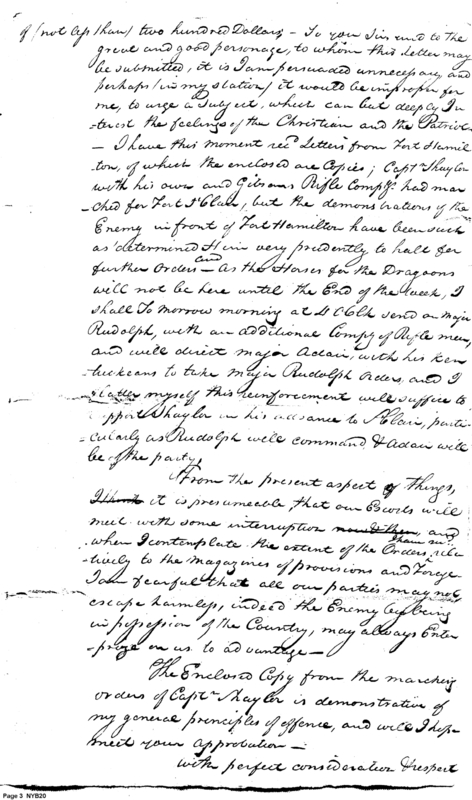 of (not less than) two hundred Dollars – To you Sir and to the
great and good personage, to whom this letter may
be submitted, it is I am persuaded unnecessary and
perhaps (in my station) it would be improper for
me, to urge a Subject, which can but deeply In-
-terest the feelings of the Christian and the Patriot
– I have this moment recd Letters from Fort Hamil-
ton, of which the enclosed are Copies; Captn Shaylor
with his own and Gibsons Rifle Compy. had mar-
-ched for Fort St Clair, but the demonstrations of the
Enemy in front of Fort Hamilton have been such
as determined Him very prudently to halt for
further orders – and As the Horses for the Dragoons
will not be here until the End of the week, I
shall To morrow morning at 4 OClk send on Major
Rudolph, with an additional Compy of Rifle men,
and will direct Major Adair, with his Ken
-tuckeans to take Major Rudolphs Orders, and I
flatter myself this reinforcement will suffice to
support Shaylor in his advance to St Clair, parti-
-cularly as Rudolph will command & Adair will
be of the party,
From the present aspect of things,
I think it is presumeable, that our Escorts will
meet with some interruption now & then, and
when I contemplate the extent of the Orders, rela
-tively to the Magazines of provisions and Forage
I am fearful that all our parties may not
escape harmless, indeed the Enemy by being
in possession of the Country, may always Enter
-prize on us to advantage –
The Enclosed Copy from the marching
orders of Captn Shaylor is demonstrative of
my general principles of offence, and will I hope
meet your approbation –
with perfect consideration & respect
Page 3 NYB20